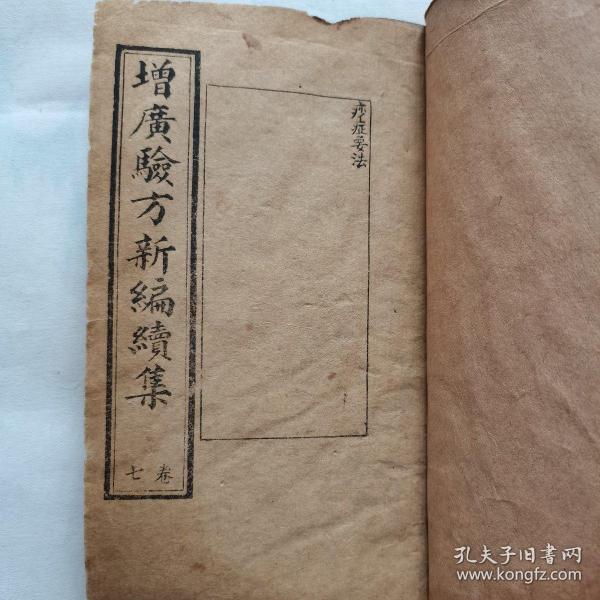 痧症要法
增廣驗方新編續集
卷七
孔夫子旧书网
www.kongfz.com